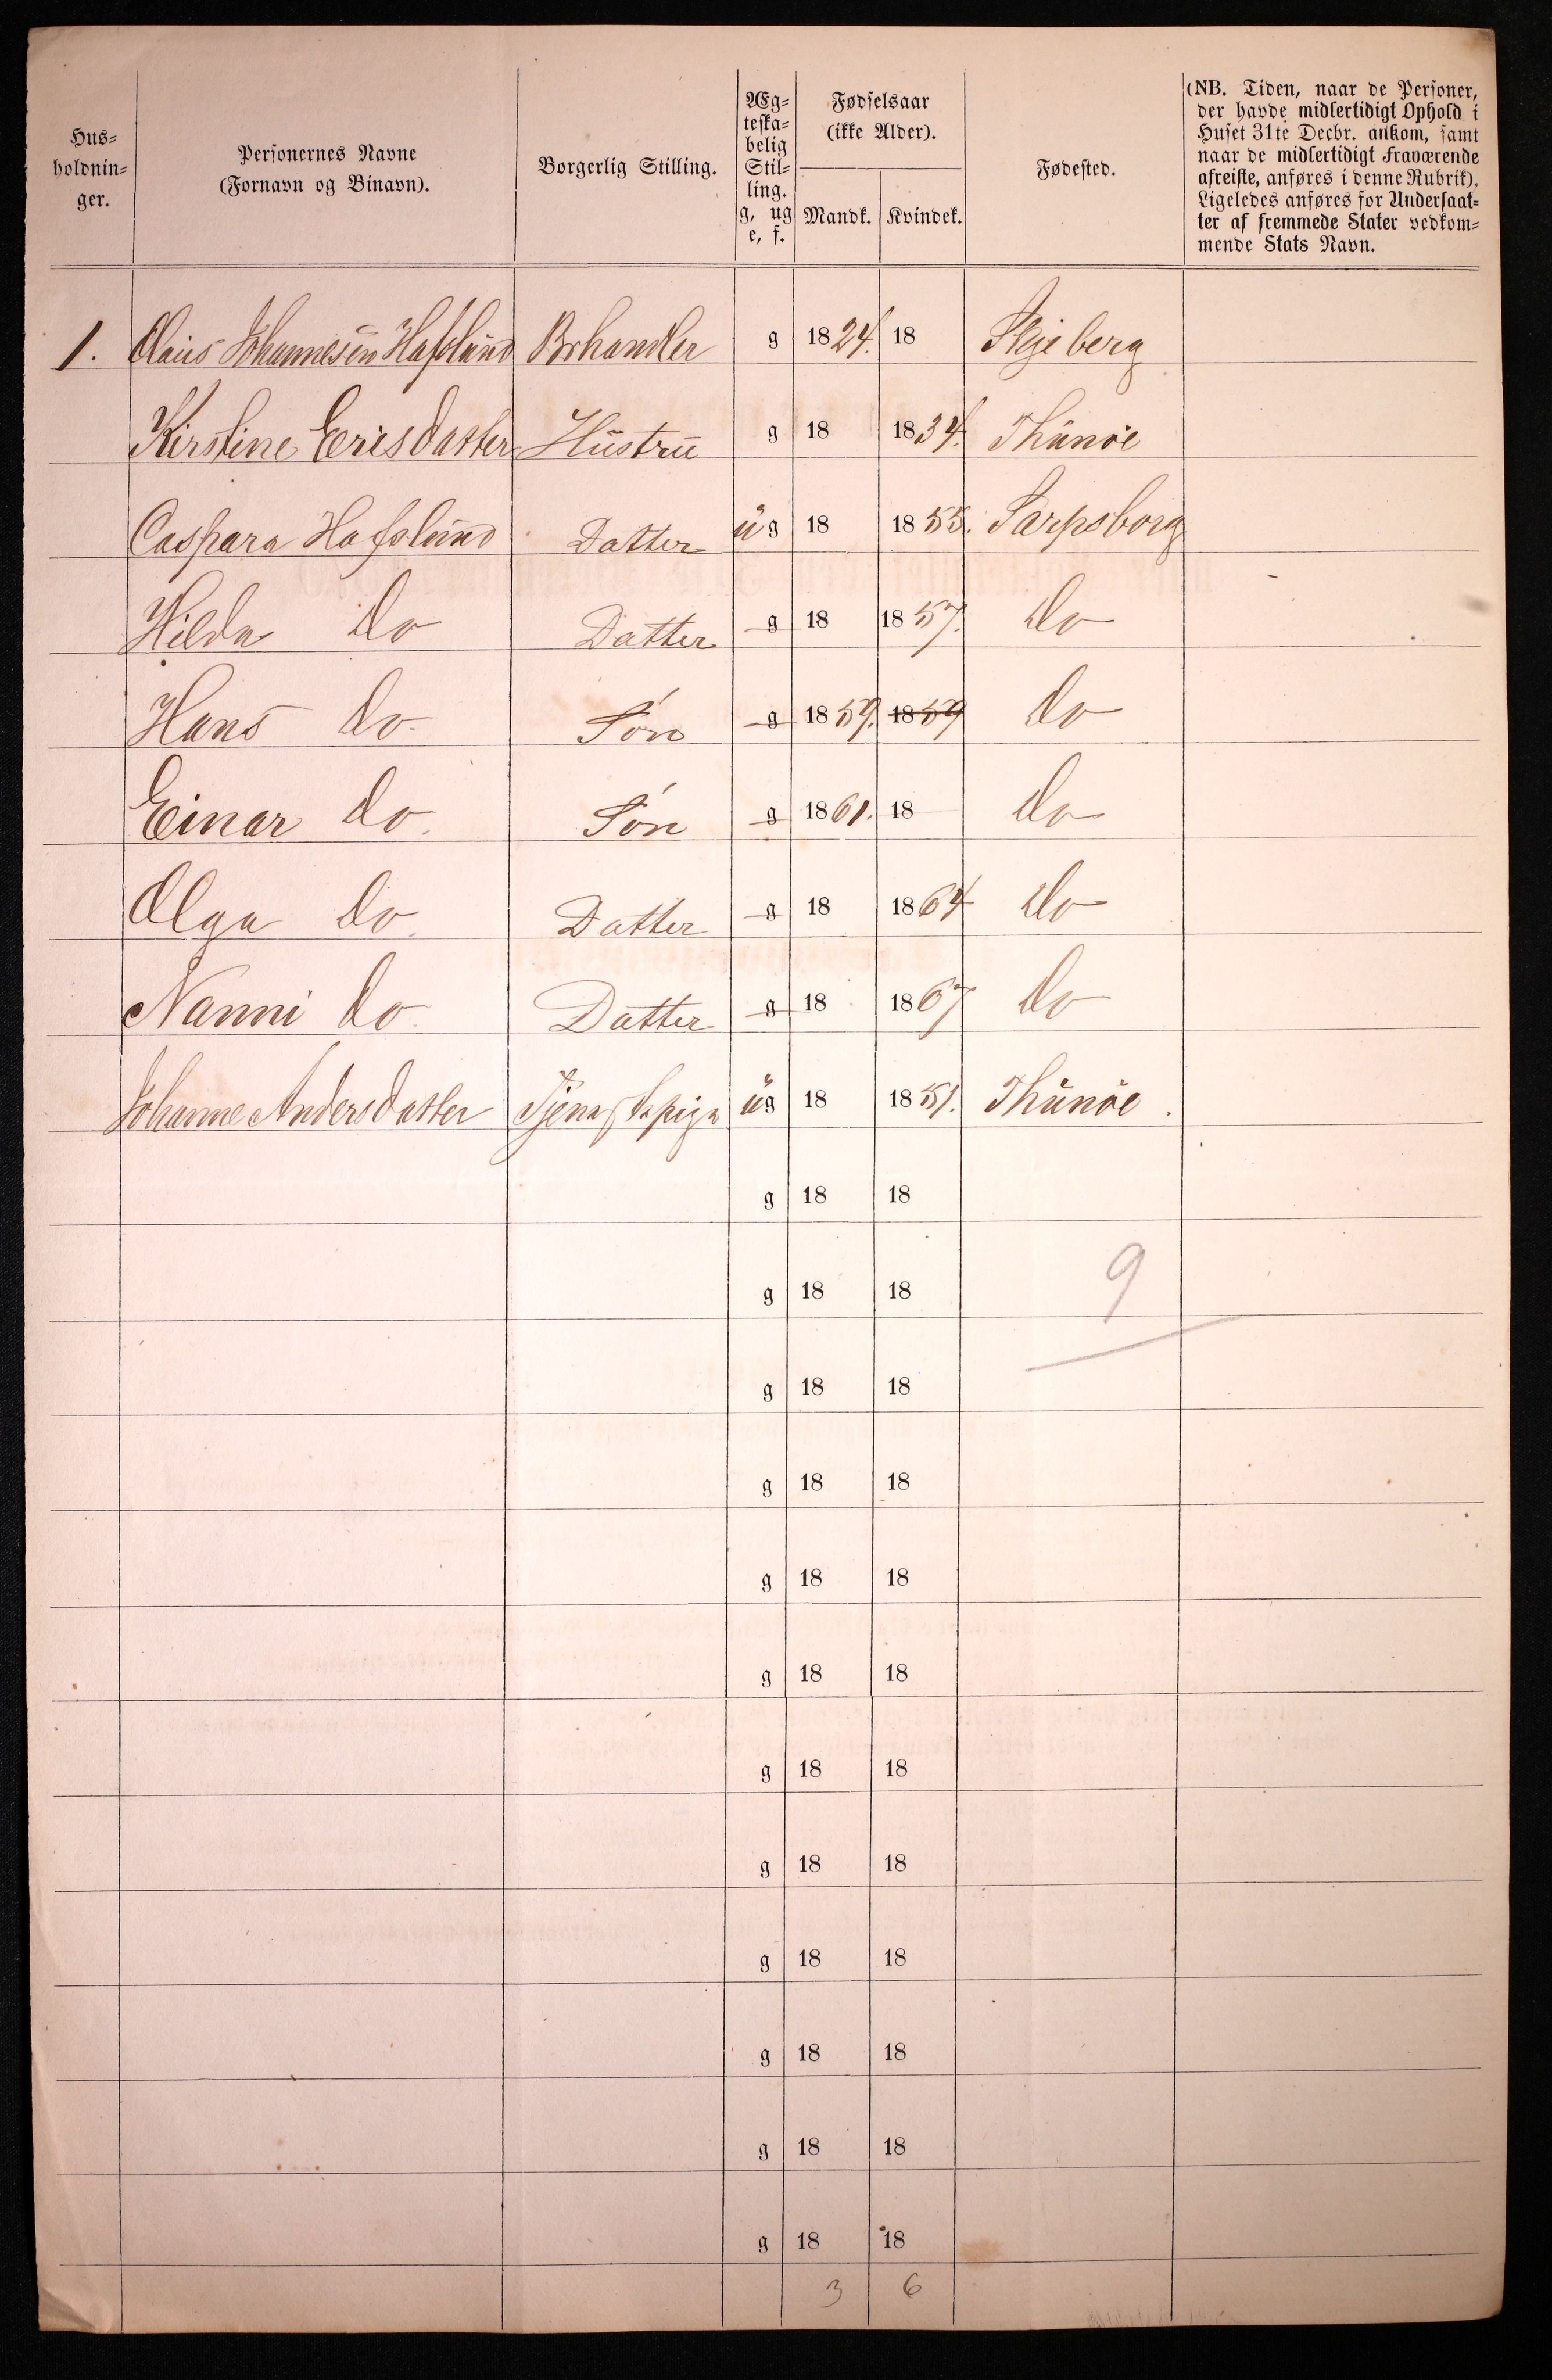 Hus-
holdnin-
ger.
Personernes Navne
(Fornavn og Binavn).
Borgerlig Stilling.
Æg-
teska-
belig
Stil-
ling.
g, ug
e, f.
Fødselsaar
(ikke Alder).
Mandk. Kvindek.
Fødested.
(NB. Tiden, naar de Personer,
der havde midlertidigt Ophold i
Huset 31te Decbr. ankom, samt
naar de midlertidigt Fraværende
afreiste, anføres i denne Rubrik).
Ligeledes anføres for Undersaat-
ter af fremmede Stater vedkom-
mende Stats Navn.
1. Olaus Johannesen Hafslund Brhandler g 1824. 18 Skjeberg
Kirstine Erisdatter Hustru g 18 1834. Thunöe
Caspara Hafslund Datter ug 18 1855. Sarpsborg
Hilda do Datter g 18 1857. do
Hans do. Søn g 1859. 1859 do
Einar do. Søn g 1861. 18 do
Olga do. Datter g 18 1864 do
Nanni do. Datter g 18 1867 do
Johanne Andersdatter Tjenestepige ug 18 1851. Thunöe.
g 18 18
g 18 18 9
g 18 18
g 18 18
g 18 18
g 18 18
g 18 18
g 18 18
g 18 18
g 18 18
g 18 18
g 18 18
3 6